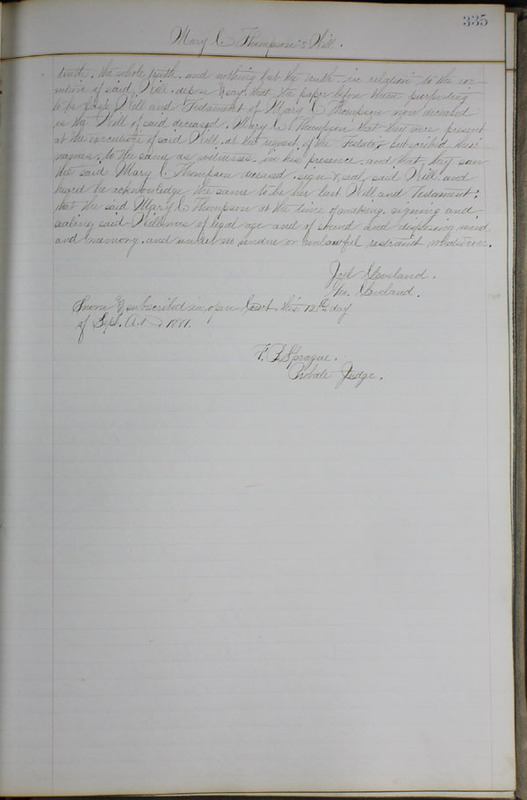 335
Mary C Thompson's Will.
truth, the whole truth, and nothing but the truth in relation to the exe-
cution of said Will, depose & say that the paper before them purporting
to be last Will and Testament of Mary C Thompson now deceased
is the Will of said deceased, Mary C Thompson that they were present
at the execution of said Will, at the request of the Testator & subscribed their
names to the same as witnesses in his presence and that they saw
the said Mary C Thompson deceased, sign & seal said Will and
heard her acknowledge the same to be her last Will and Testament;
that the said Mary C Thompson at the time of making, signing and
sealing said Will was of legal age and of sound and disposing mind
and memory, and under no undue or unlawful restraint whatsoever.
Cleveland.
Geo. Cleveland.
Sworn & subscribed in open Court this 12th day
of Sept. A.D
F. Sprague.
Probate Judge.